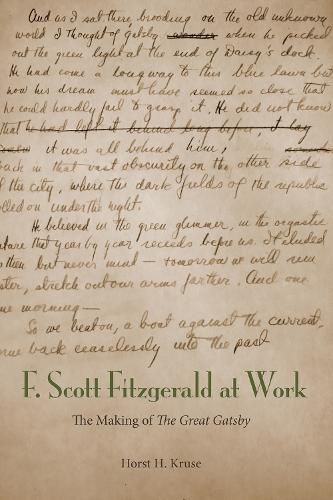 And as I sat there brooding on the old unknown
world I thought of Gatsby when he picked
out the green light at the end of Daisy's dock.
He had come a long way to this blue lawn but
now his dream must have seemed so close that
he could hardly fail to grasp it. He did not know
that he had left it behind long before, it lay
it was all behind him,
back in that vast obscurity on the other side
of the city, where the dark fields of the republic
rolled on under the night.
He believed in the green glimmer, in the orgastic
future that year by year recedes before us. It eluded
us then but never mind — tomorrow we will run
faster, stretch out our arms farther. And one
fine morning —
So we beat on, a boat against the current,
borne back ceaselessly into the past
F. Scott Fitzgerald at Work
The Making of The Great Gatsby
Horst H. Kruse